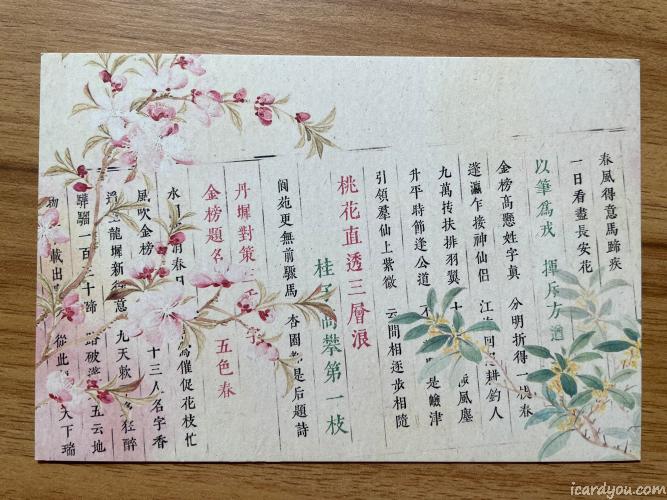 春風得意馬蹄疾
一日看盡長安花
以筆爲戎 揮斥方遒
金榜高懸姓字眞 分明折得一枝春
蓬瀛乍接神仙侶 江 回 耕釣人
九萬摶扶排羽翼 十 風塵
升平時節逢公道 不 是嶮津
引領羣仙上紫微 云間相逐步相隨
桃花直透三層浪
桂子高攀第一枝
閬苑更無前驟馬 杏園都是后題詩
丹墀對策三千字
金榜題名五色春
水 消春日 爲催促花枝忙
風吹金榜 十三人名字香
龍墀新得意 九天歡 狂醉
驊騮一百三十蹄 踏破 五云地
物 載出 從此 天下瑞
icardyou.com